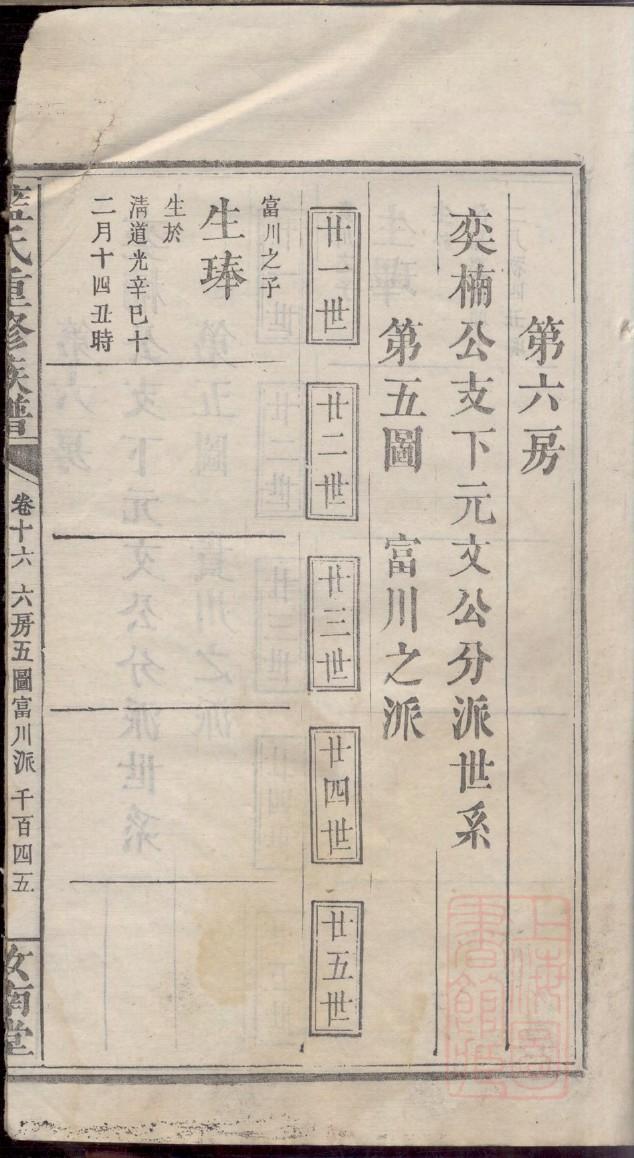 第六房
奕楠公支下元文公分派世系
第五圖 富川之派
廿一世
廿二世
廿三世
廿四世
廿五世
富川之子
生琫
生於
清道光辛巳十
二月十四丑時
藍氏重修族譜
卷十六 六房五圖富川派 千百四五
汝南堂
上海圖書館藏